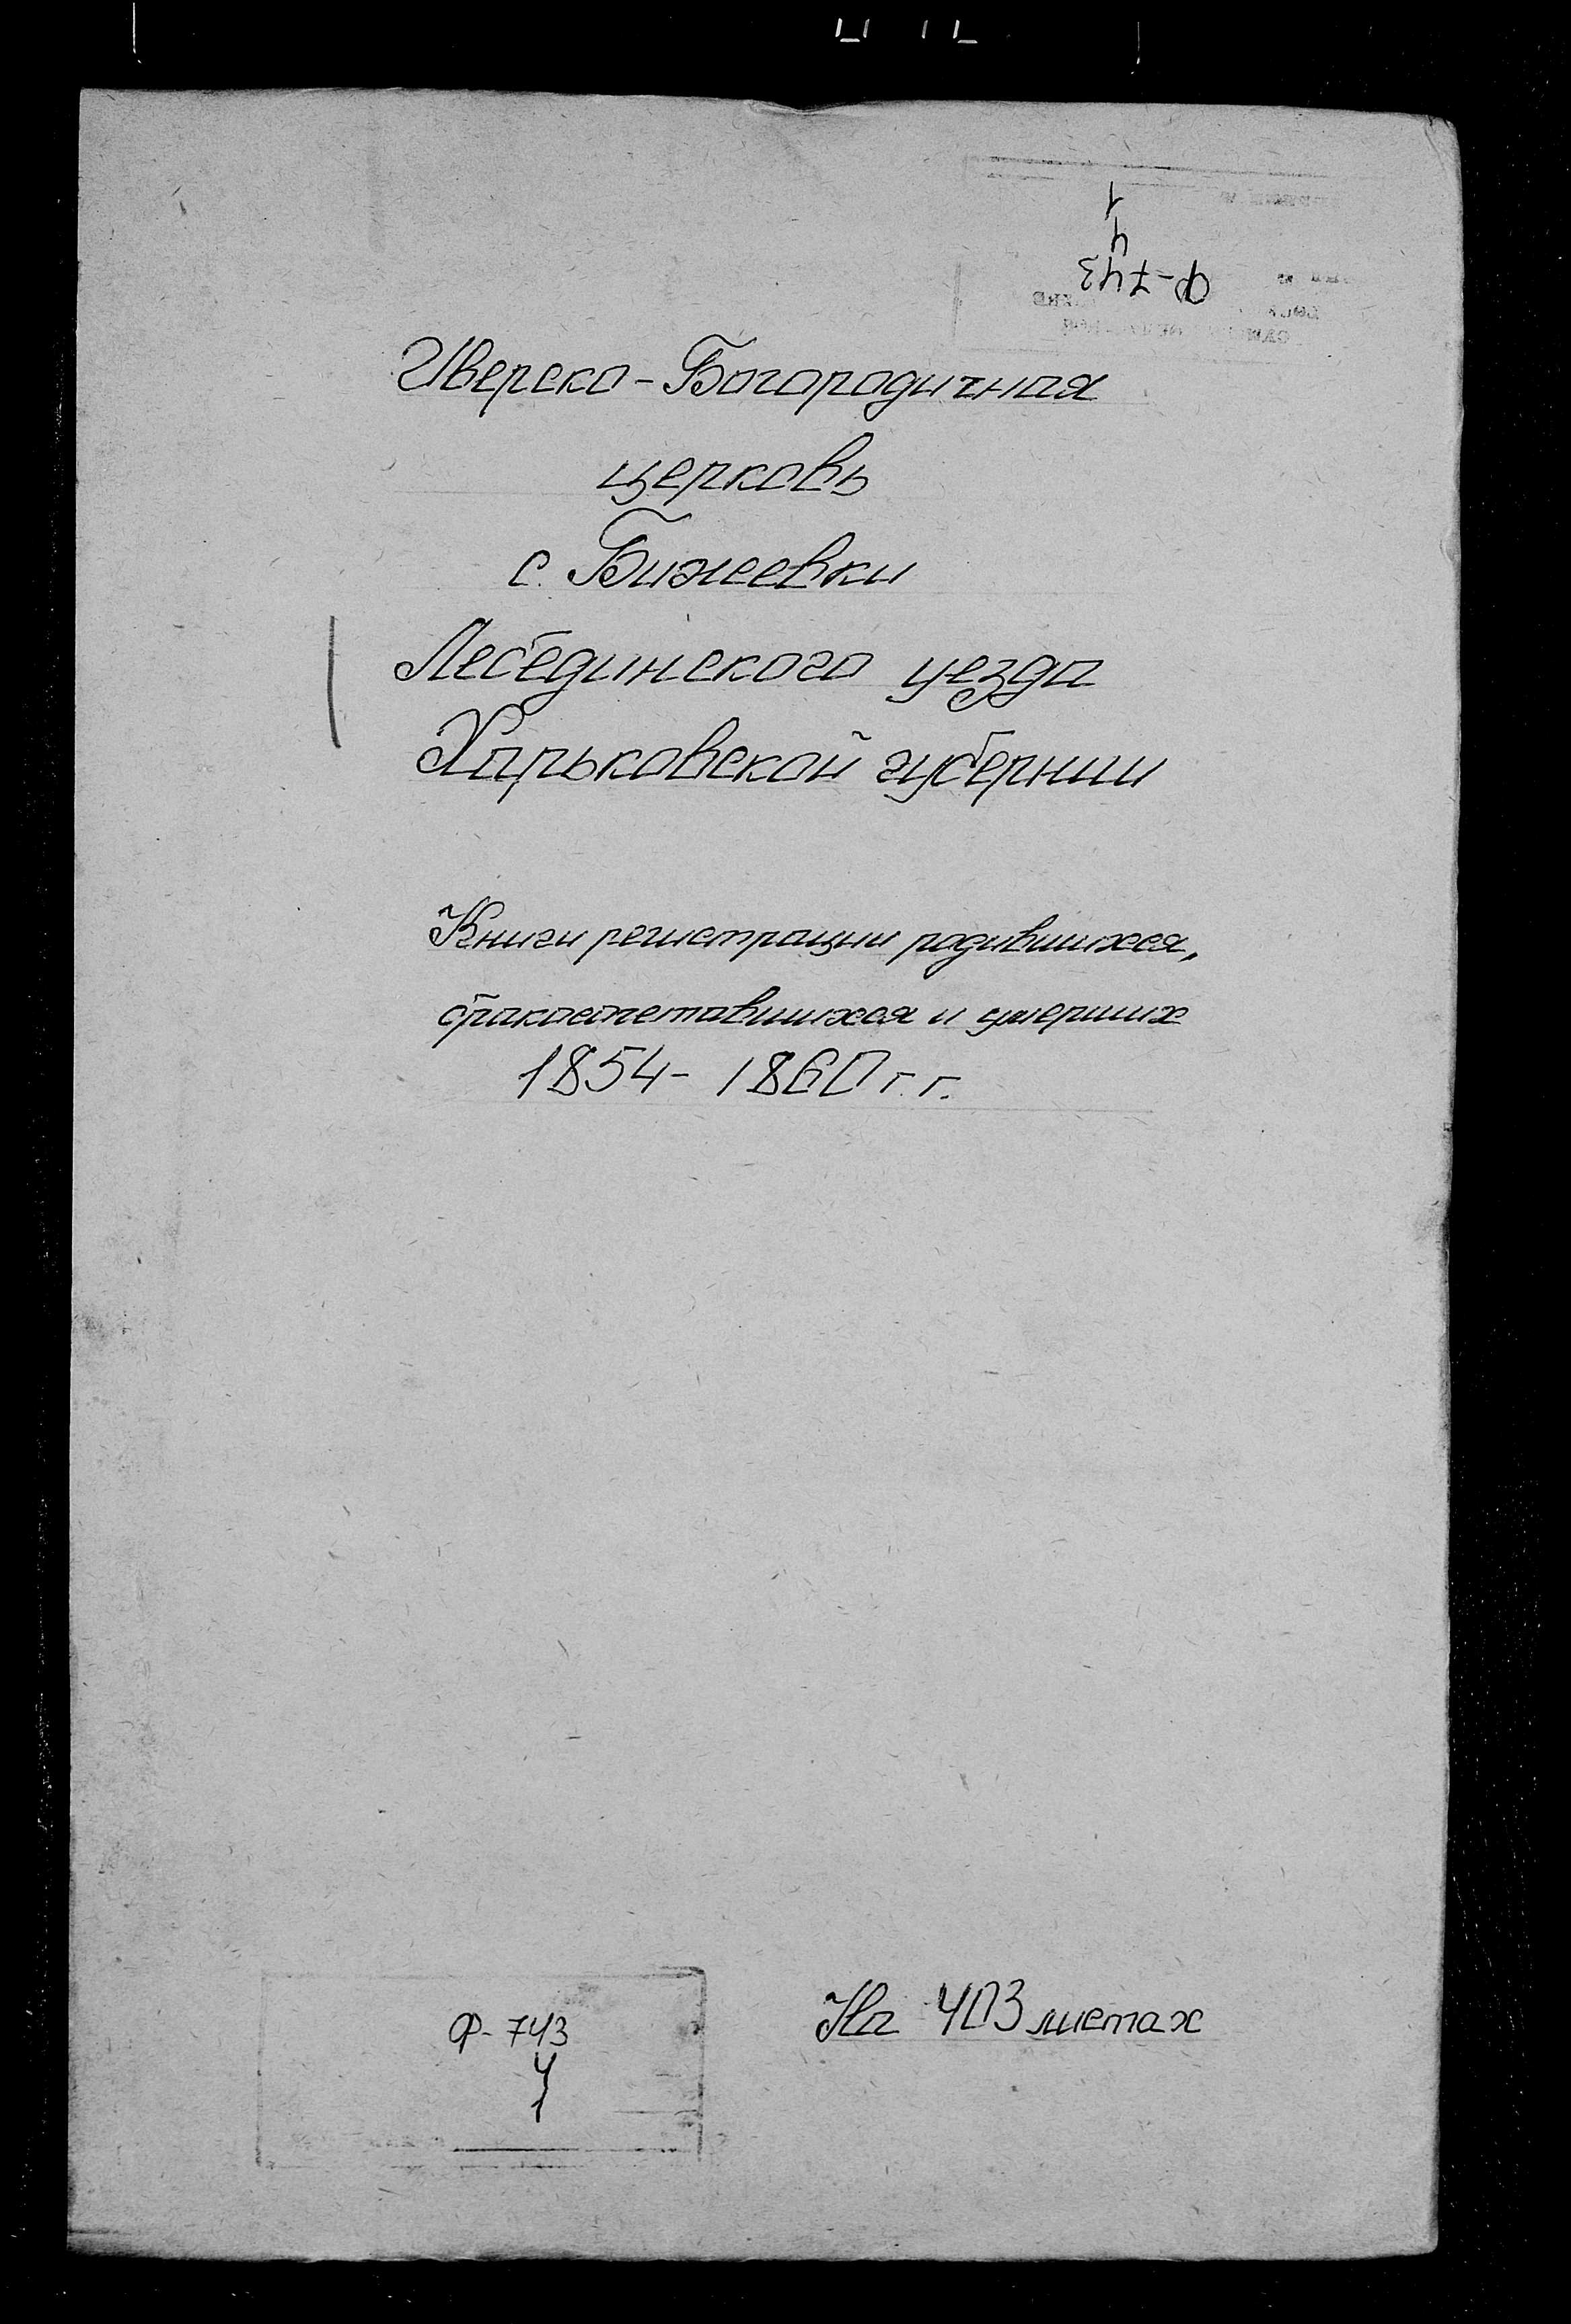 Ф-743
4
1
Иверско-Богородичная
церковь
с. Бижеевки
Лебединского уезда
Харьковской губернии
Книги регистрации родившихся,
бракосочетавшихся и умерших
1854- 1860 г.г.
Ф- 743
4
1
На 403 листах